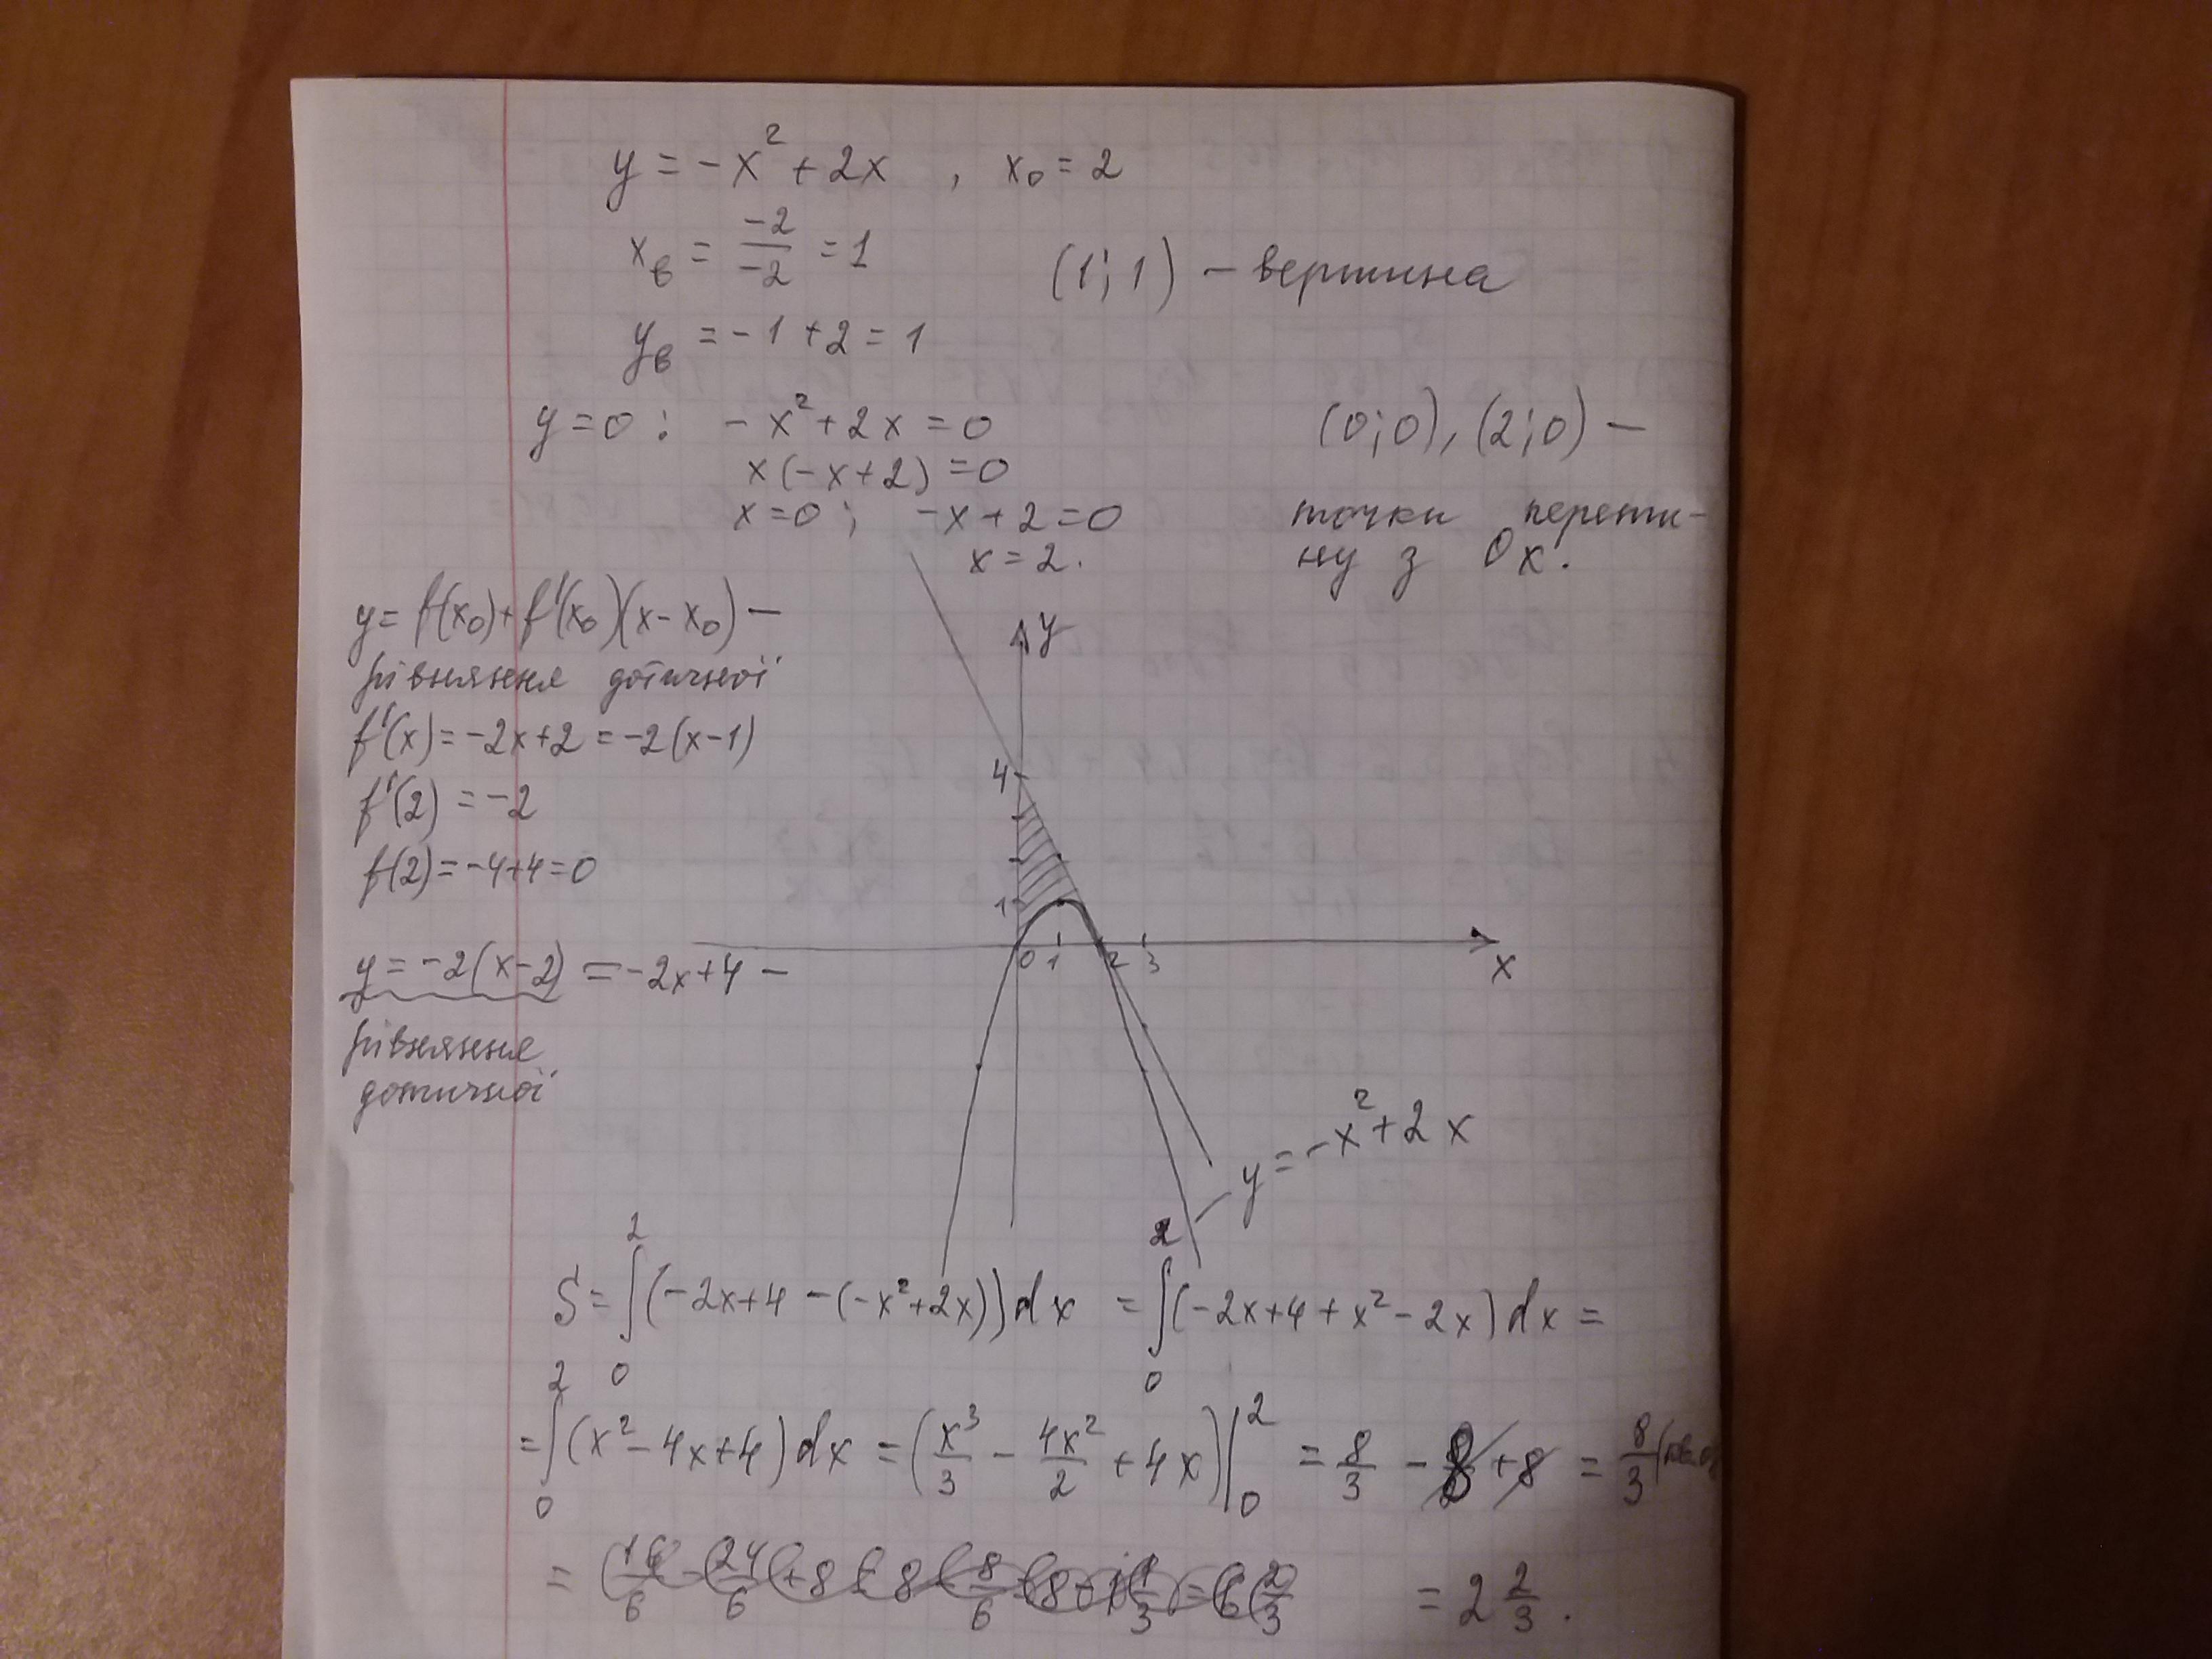 y = -x² + 2x , x₀ = 2
x_в = -2/-2 = 1
(1; 1) - вершина
y_в = -1 + 2 = 1
y = 0 : -x² + 2x = 0
(0; 0), (2; 0) -
x(-x+2) = 0
x = 0 ; -x + 2 = 0
точки перети-
x = 2.
ну з Ox.
y = f(x₀) + f'(x₀)(x - x₀) -
рівняння дотичної
f'(x) = -2x+2 = -2(x-1)
f'(2) = -2
f(2) = -4+4 = 0
y = -2(x-2) = -2x+4 -
рівняння
дотичної
y
4
1
0 1 2 3
x
y = -x² + 2x
S = ∫₀² (-2x+4 - (-x²+2x))dx = ∫₀² (-2x+4+x²-2x)dx =
= ∫₀² (x² - 4x + 4)dx = (x³/3 - 4x²/2 + 4x)|₀² = 8/3 - 8 + 8 = 8/3
= 2 2/3.